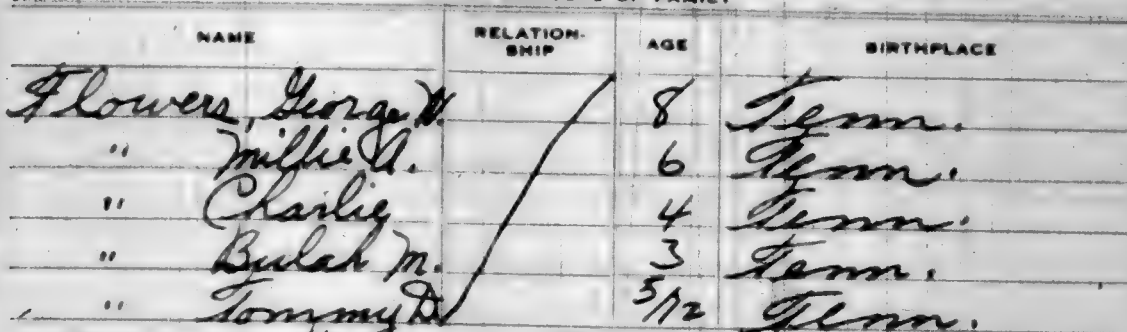 OF FAMILY
NAME RELATION-SHIP AGE BIRTHPLACE
Flowers, George W. 8 Tenn.
" Millie A. 6 Tenn.
" Charlie 4 Tenn.
" Bulah M. 3 Tenn.
" Tommy D. 5/12 Tenn.